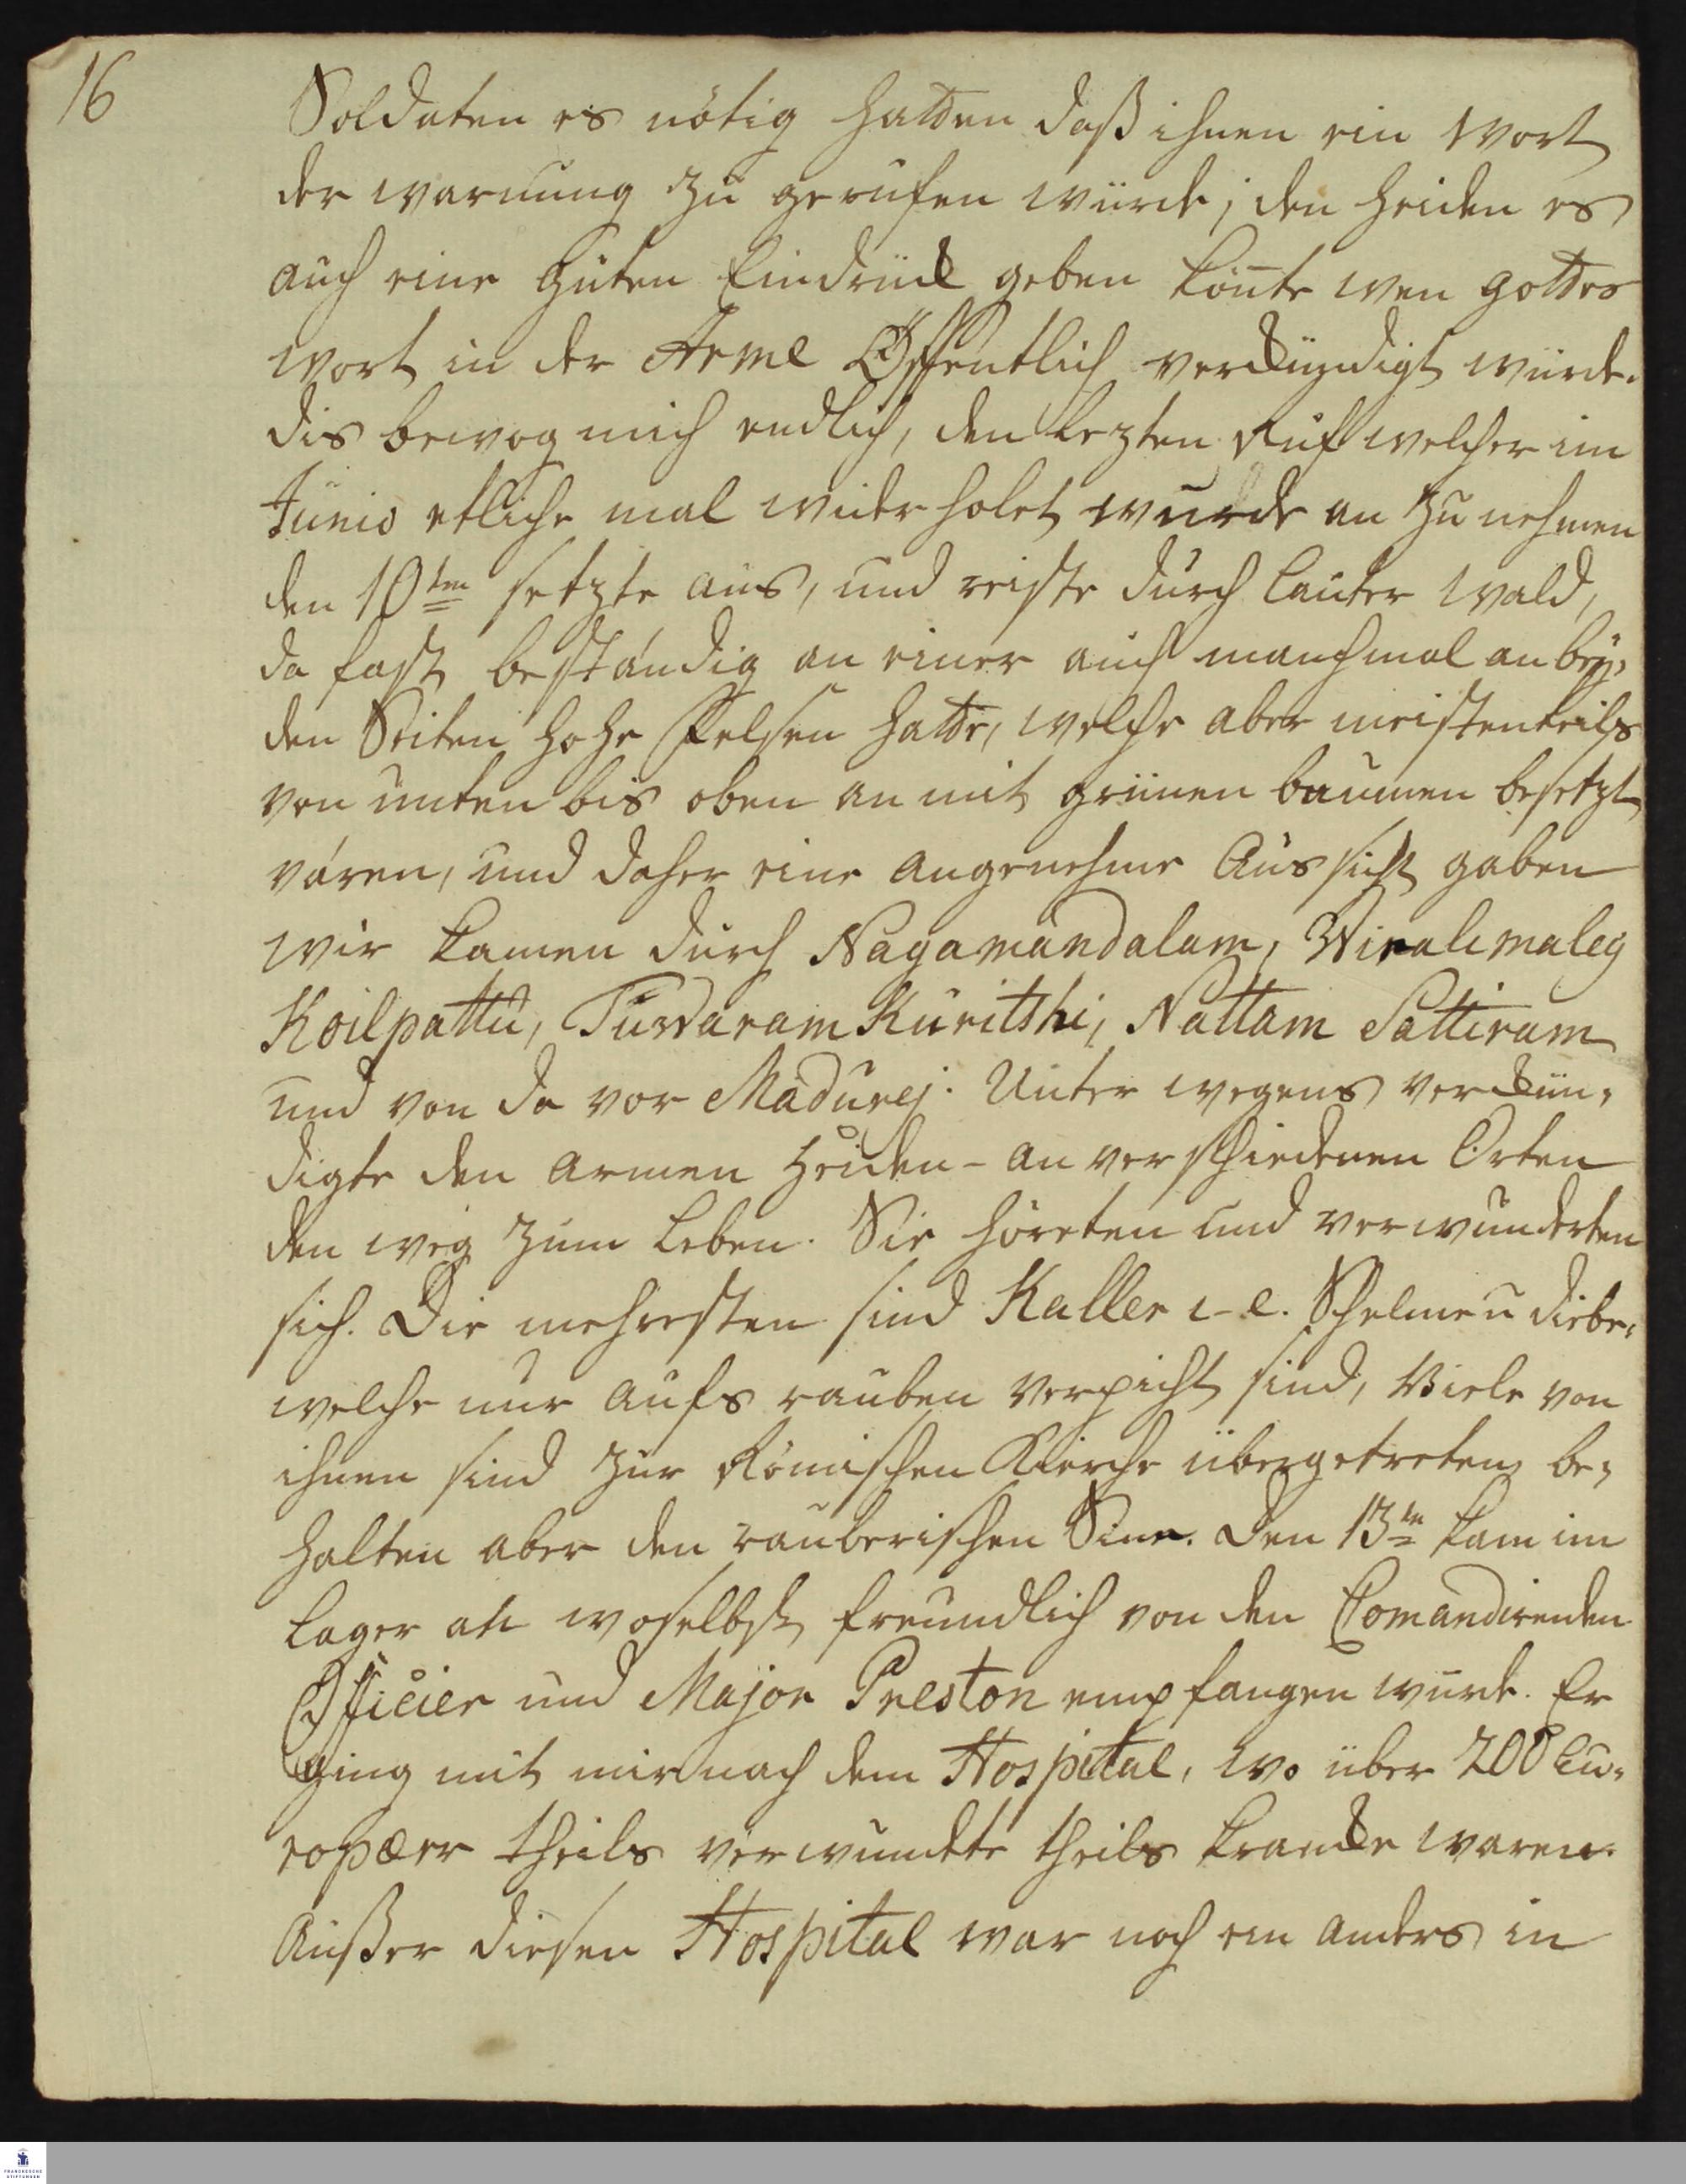 16
Soldaten es nötig hatten daß ihnen ein Wort
der warnung zu gerufen würde; den Heiden es
auch eine guten Eindruck geben könte wen Gottes
Wort in der Arme Öffentlich verkündigt würde.
dis bewog mich endlich, den lezten Ruf welcher im
Junio etliche mal wider holet wurde an zu nehmen
den 10ten setzte aus, und reiste durch lauter Wald,
da fast beständig an einer auch manchmal an bey-
den Seiten hohe Felsen hatte, welche aber meistenteils
von unten bis oben an mit grünen baumen besetzt
váren, und daher eine angenehme Aussicht gaben
wir kamen durch Nagamandalam, Viralimaley
Koilpattu, Tuvvaram Kuritshi, Nattam Sattiram
und von da vor Madurej. Unter wegens verkün-
digte den armen Heiden - an verschiedenen Orten
den weg zum Leben. Sie höreten und verwunderten
sich. Die mehresten sind Kaller i-e. Schelme u diebe,
welche nur aufs rauben verpicht sind, Viele von
ihnen sind zur Römischen Kirche übergetreten be-
halten aber den rauberischen Sinn. Den 13tn kam im
Lager an woselbst freundlich von den Comandirenden
Officier und Major Preston empfangen wurde. Er
ging mit mir nach dem Hospital, wo über 200 Eu-
ropæer theils verwundte theils krancke waren.
Außer diesen Hospital war noch ein anders in
FRANCKESCHE
STIFTUNGEN